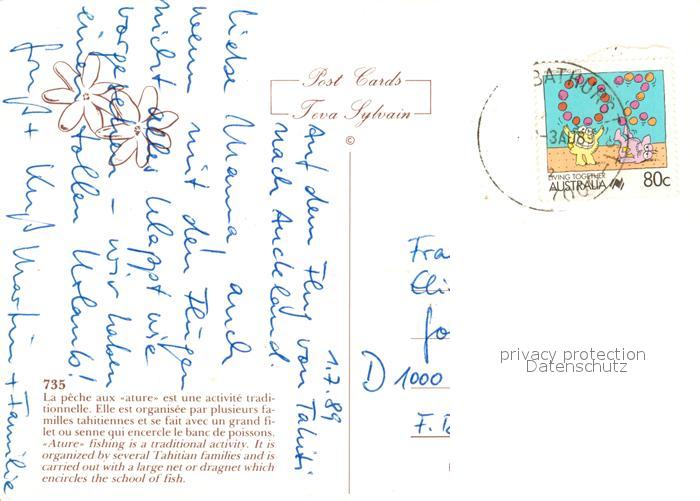 Post Cards
Teva Sylvain
©
1.7.89
Auf dem Flug von Tahiti
nach Auckland.
Liebe Mama, auch
wenn mit den Flügen
nicht alles klappt wie
vorgesehen – wir haben
einen tollen Urlaub!
Gruß + Kuß Martin + Familie
735
La pêche aux «ature» est une activité tradi-
tionnelle. Elle est organisée par plusieurs fa-
milles tahitiennes et se fait avec un grand fi-
let ou senne qui encercle le banc de poissons.
«Ature» fishing is a traditional activity. It is
organized by several Tahitian families and is
carried out with a large net or dragnet which
encircles the school of fish.
BATHURST
3AU8
OZ
LIVING TOGETHER
AUSTRALIA 80c
Fra
D 1000
privacy protection
Datenschutz